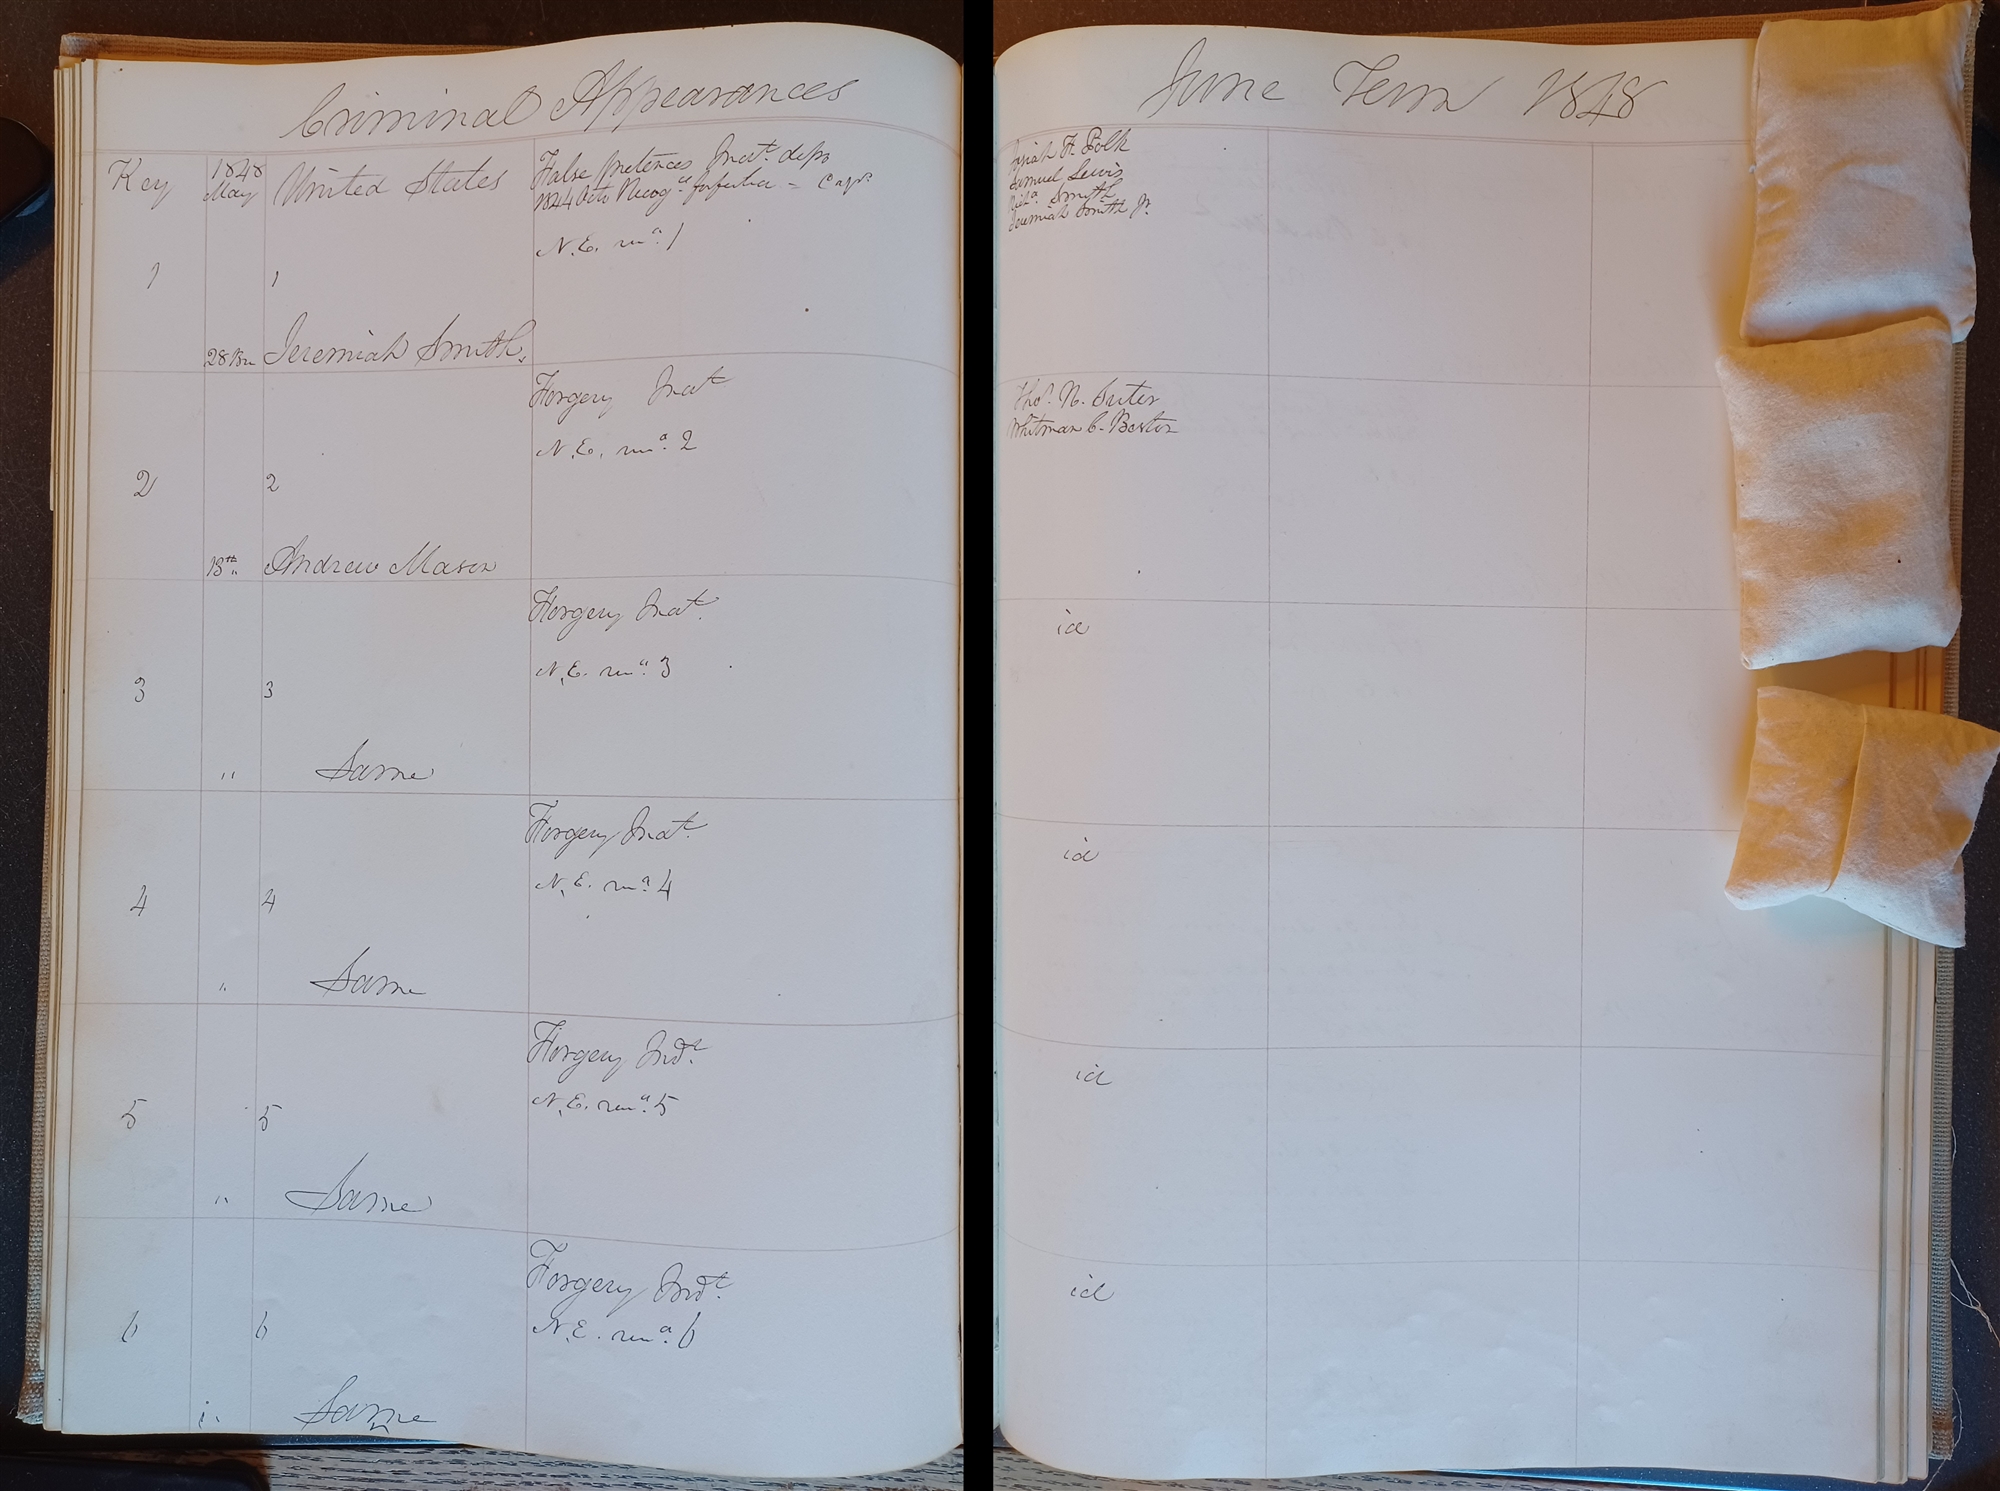 Criminal Appearances
Key 1848 May United States False pretences Indt. depo
1844 Octo Recogce forfeited -
N.E. ma. 1
1 1
28 Jeremiah Smith.
Forgery Indt
N.E. ma. 2
2 2
13th Andrew Mason
Forgery Indt.
N.E. ma. 3
3 3
" Same
Forgery Indt.
N.E. ma. 4
4 4
" Same
Forgery Indt.
N.E. ma. 5
5 5
" Same
Forgery Indt.
N.E. ma. 6
6 6
" Same
June Term 1848
Josiah F. Polk
Samuel Lewis
Richd. Smith
Jeremiah Smith Jr.
Thos. N. Suter
Whitman C. Bestor
id
id
id
id